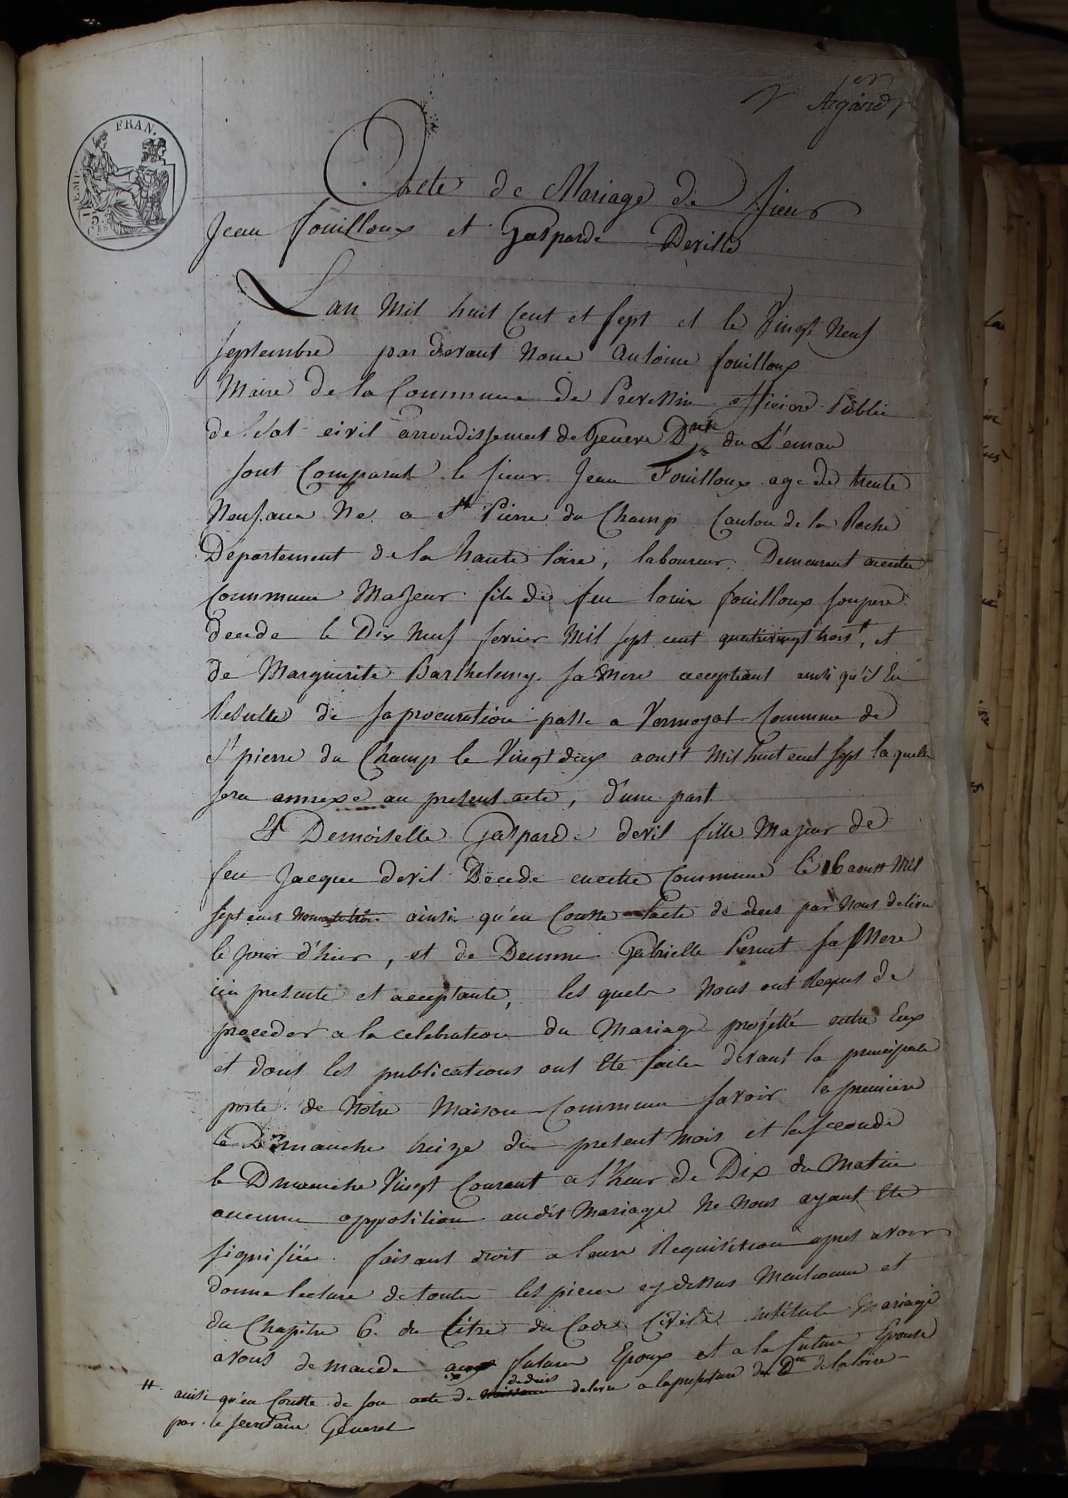 FRAN.
75
Acte de Mariage de sieur
Jean fouilloux et Gasparde Deville
Lan mil huit Cent et sept et le Vingt Neuf
septembre par devant Nous Antoine fouilloux
Maire de la Commune de Prevessin officier Public
de l'etat civil arrondissement de Geneve Dmt du L'eman
sont Comparut le sieur Jean Fouilloux age de trente
Neuf ans Ne a St Pierre du Champ Canton de la Roche
Departement de la haute loire, laboureur Demeurant
Commune Majeur fils de feu louis fouilloux son pere
decede le Dix Neuf fevrier Mil sept cent quatrevingt trois #, et
de Marguerite Barthelemy sa Mere acceptant ainsi qu'il En
Resulte de sa procuration passe a Vermoyal Commune de
St pierre du Champ le Vingt deux aoust Mil huit cent sept laquelle
sera annexe au present acte, d'une part
Et Demoiselle Gasparde devil fille Majeur de
feu Jacque devil Decede en cette Commune le 16 aoust Mil
sept cent ainsi qu'en Conste l'acte de deces par Nous delivre
le jour d'hier, et de Gabrielle Pernet sa Mere
ici presente et acceptante, les quels Nous ont Requis de
proceder a la celebration du Mariage projetté entre Eux
et dont les publications ont Ete faites devant la principale
porte de Notre Maison Commune savoir la premiere
le Dimanche treize du present Mois et la seconde
le Dimanche Vingt Courant a l'heur de Dix du Matin
aucune opposition audit Mariage Ne Nous ayant Ete
signifiée faisant droit a leur Requisition apres avoir
donne lecture de toutes les pieces cy dessus Mentionne et
du Chapitre 6 du titre du Code Civile intitule Mariage
avons demande au futur Epoux et a la future Epouse
# ainsi qu'en Conste de son acte de deces delivre a la prefecture du Dmt de la loire
par le secretaire General